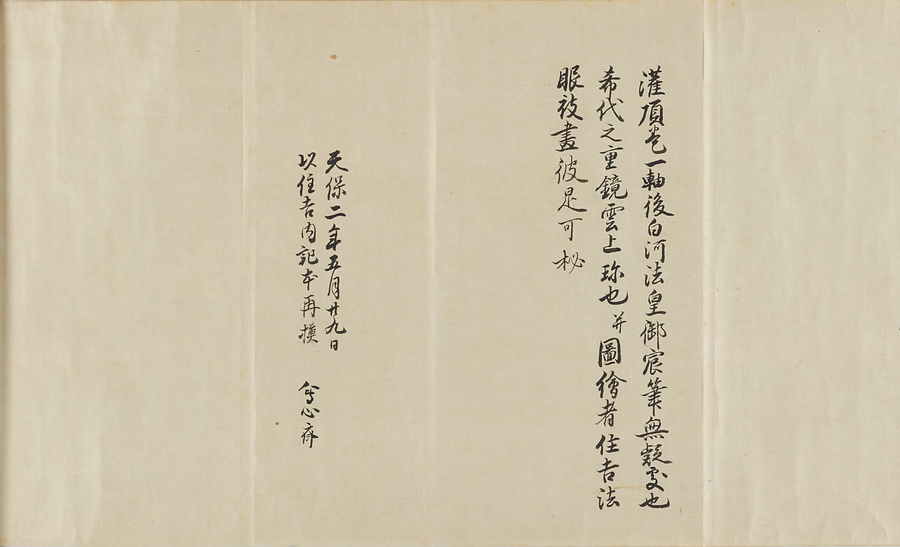 灌頂巻一軸後白河法皇御宸筆無疑処也
希代之重鏡雲上珎也并圖繪者住吉法
眼被畫彼是可秘
天保二年五月廿九日
以住吉内記本再模 會心齋